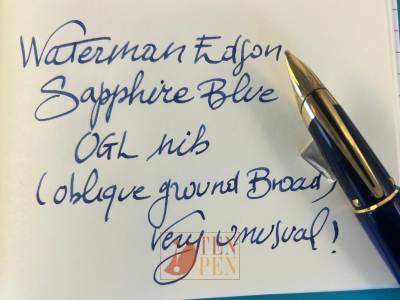 Waterman Edson
Sapphire Blue
OGL nib
(oblique ground Broad)
Very unusual!
TEN
PEN